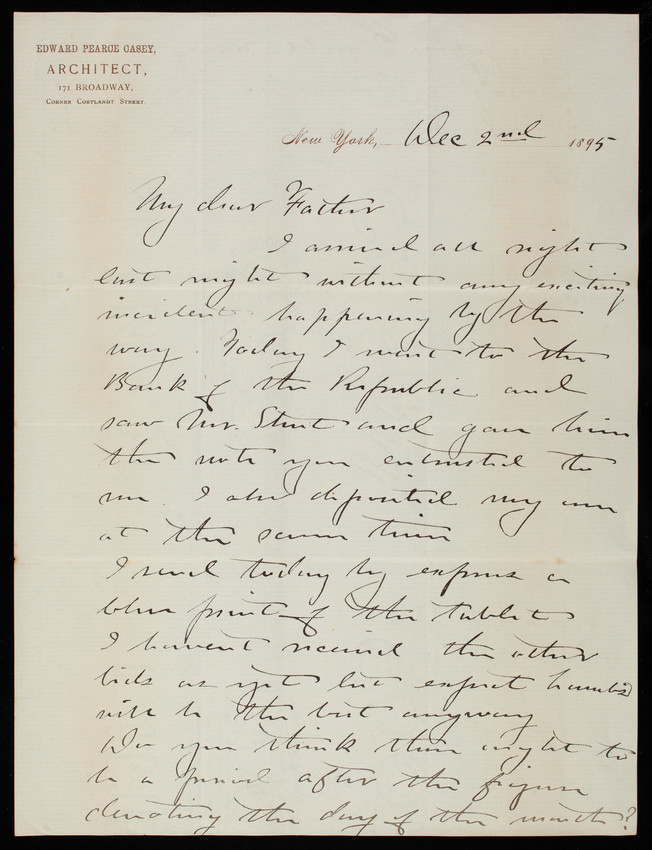 EDWARD PEARCE CASEY,
ARCHITECT,
171 BROADWAY,
CORNER CORTLANDT STREET.
New York, Dec 2nd 1895
My dear Father
I arrived all right
last night without any exciting
incident happening by the
way. Today I went to the
Bank of the Republic and
saw Mr. Stout and gave him
the note you entrusted to
me. I also deposited my own
at the same time
I send today by express a
blue print of the tablet
I havent received the other
bids as yet but expect
will be the best anyway
Do you think there ought to
be a period after the figure
denoting the day of the month?